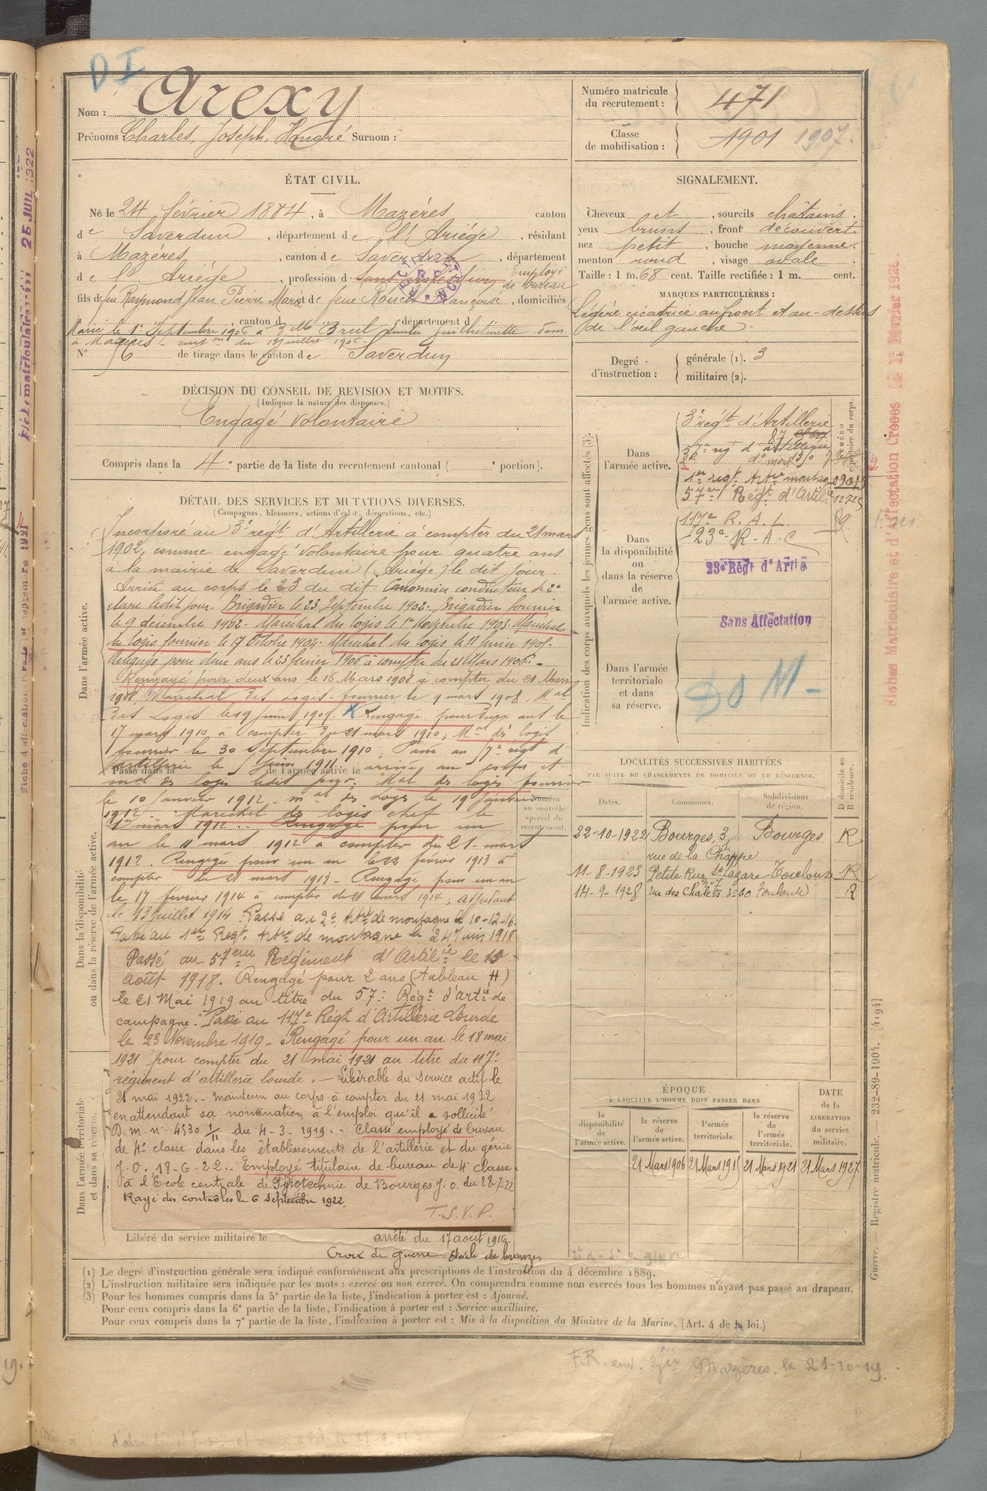 D I
Nom : Arexy
Prénoms : Charles, Joseph, Honoré Surnom :
Numéro matricule du recrutement : 471
Classe de mobilisation : 1901 1907.
ÉTAT CIVIL.
Né le 24 février 1884, à Mazéres canton
de Saverdun, département de l'Ariège, résidant
à Mazéres, canton de Saverdun, département
de l'Ariège, profession de employé de bureau
fils de feu Raymond Jean Pierre Marie et de feue Rouch Françoise, domiciliés
canton d département d
Marié le 1er Septembre 1906 à
N° 6 de tirage dans le canton de Saverdun
SIGNALEMENT.
Cheveux et, sourcils châtains.
yeux bruns, front découvert.
nez petit, bouche moyenne.
menton rond, visage ovale.
Taille : 1 m. 68 cent. Taille rectifiée : 1 m. cent.
MARQUES PARTICULIÈRES :
Légère cicatrice au front et au-dessus
de l'œil gauche.
Degré d'instruction : générale (1). 3
militaire (2).
DÉCISION DU CONSEIL DE REVISION ET MOTIFS.
(Indiquer la nature des dispenses.)
Engagé Volontaire
Compris dans la 4e partie de la liste du recrutement cantonal ( e portion).
DÉTAIL DES SERVICES ET MUTATIONS DIVERSES.
(Campagnes, blessures, actions d'éclat, décorations, etc.)
Incorporé au 3e régt d'Artillerie à compter du 21 mars
1902, comme engagé volontaire pour quatre ans
à la mairie de Saverdun (Ariège) le dit jour.
Arrivé au corps le 23 du dit. Canonnier conducteur de 2e
classe le dit jour. Brigadier le 23 Septembre 1902. Brigadier fourrier
le 9 décembre 1902. Maréchal des logis le 1er Novembre 1903. Maréchal
des logis fourrier le 17 Octobre 1904. Maréchal des logis le 11 Juin 1905.
Rengagé pour deux ans le 25 février 1906 à compter du 21 Mars 1906.
Rengagé pour deux ans le 16 Mars 1908 à compter du 21 Mars
1908. Maréchal des logis fourrier le 9 mars 1908. Mal
des logis le 9 juin 1909. X Rengagé pour deux ans le
17 mars 1910, à compter du 21 mars 1910, Mal des logis
fourrier le 30 Septembre 1910. Passé au régt d'
artillerie le Juin 1911. arrivé au corps et
mal des logis le dit jour. Mal des logis fourrier
le 10 janvier 1912. mal des logis le 19 janvier
1912. Maréchal des logis chef le
mars 1912. Rengagé pour un
an le 11 mars 1912 à compter du 21 mars
1912. Rengagé pour un an le 22 février 1913 à
compter du 21 mars 1913. Rengagé pour un an
le 17 février 1914 à compter du 21 mars 1914; adjudant
le 13 juillet 1914. Passé au 2e Artie de montagne le 10-12-16.
Passé au 1er Régt Artie de montagne le 24 juin 1918
Passé au 57ème Régiment d'Artillie le 15
Août 1918. Rengagé pour 2 ans (tableau H)
le 21 Mai 1919 au titre du 57e Régt d'artie de
campagne. Passé au 117e Régt d'Artillerie Lourde
le 23 Novembre 1919. Rengagé pour un an le 18 mai
1921 pour compter du 21 mai 1921 au titre du 117e
régiment d'artillerie lourde. — Libérable du service actif le
21 mai 1922. — maintenu au corps à compter du 21 mai 1922
en attendant sa nomination à l'emploi qu'il a sollicité
D. m. n° 4530 1/11 du 4-3-1919. Classé employé de bureau
de 4e classe dans les établissements de l'artillerie et du génie
J. O. 13-6-22. Employé titulaire de bureau de 4e classe
à l'Ecole centrale de Pyrotechnie de Bourges J. O. du 28-7-22
Rayé des contrôles le 6 septembre 1922.
T. S. V. P.
Libéré du service militaire le
arrêté du 17 août 1919
Croix de guerre étoile de bronze
Dans l'armée active.
Dans la disponibilité ou dans la réserve de l'armée active.
Dans l'armée territoriale et dans sa réserve.
Indication des corps auxquels les jeunes gens sont affectés (3).
Dans l'armée active.
3e régt d'Artillerie
1er régt Artie montagne
57ème Régt d'Artie
Dans la disponibilité ou dans la réserve de l'armée active.
117e R. A. L.
23e R. A. C.
23e Régt d'Artie
Sans Affectation
Dans l'armée territoriale et dans sa réserve.
DOM -
LOCALITÉS SUCCESSIVES HABITÉES
PAR SUITE DE CHANGEMENTS DE DOMICILE OU DE RÉSIDENCE.
Dates. Communes. Subdivisions de région. D domicile ou R résidence.
22-10-1922 Bourges, 3, rue de la Chappe Bourges R
11-8-1923 Petite Rue St Lazare Toulouse R
14-9-1928 rue des Chalets n° 60 Toulouse R
ÉPOQUE
À LAQUELLE L'HOMME DOIT PASSER DANS
la disponibilité de l'armée active.
la réserve de l'armée active.
l'armée territoriale.
la réserve de l'armée territoriale.
DATE de la LIBÉRATION du service militaire.
21 Mars 1906 21 Mars 1915 21 Mars 1921 21 Mars 1927
(1) Le degré d'instruction générale sera indiqué conformément aux prescriptions de l'instruction du 4 décembre 1889.
(2) L'instruction militaire sera indiquée par les mots : exercé ou non exercé. On comprendra comme non exercés tous les hommes n'ayant pas passé au drapeau.
(3) Pour les hommes compris dans la 5e partie de la liste, l'indication à porter est : Ajourné.
Pour ceux compris dans la 6e partie de la liste, l'indication à porter est : Service auxiliaire.
Pour ceux compris dans la 7e partie de la liste, l'indication à porter est : Mis à la disposition du Ministre de la Marine. (Art. 4 de la loi.)
Mazères, le 21-10-19.
Guerre. — Registre matricule. — 232-89-1904. [4194]